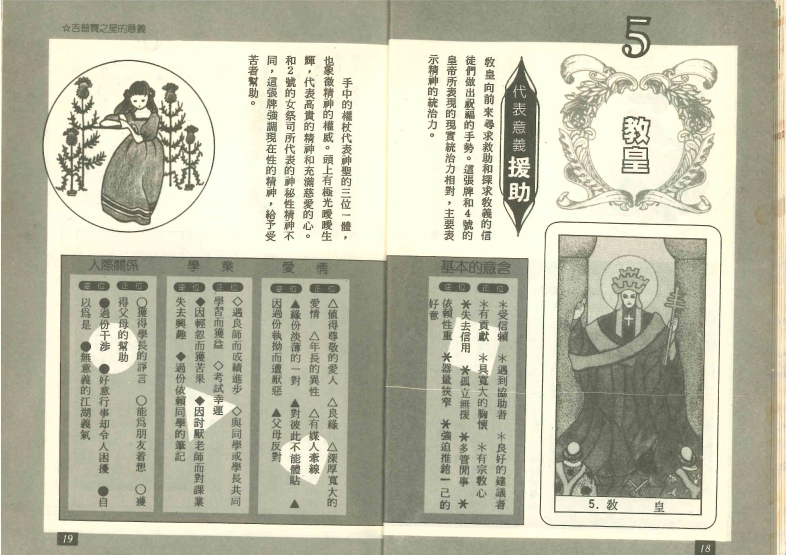 5
教皇
代表意義 援助
教皇向前來尋求救助和探求教義的信
徒們做出祝福的手勢。這張牌和4號的
皇帝所表現的現實統治力相對,主要表
示精神的統治力。
5. 教 皇
基本的意含
逆位 正位
＊受信賴 ＊遇到協助者 ＊良好的建議者
＊有貢獻 ＊具寬大的胸懷 ＊有宗教心
＊失去信用 ＊孤立無援 ＊多管閒事 ＊
依賴性重 ＊器量挾窄 ＊強迫推給一己的
好意
18
☆吉普賽之星的意義
手中的權杖代表神聖的三位一體,
也象徵精神的權威。頭上有極光曖曖生
輝,代表高貴的精神和充滿慈愛的心。
和2號的女祭司所代表的神秘性精神不
同,這張牌強調現在性的精神,給予受
苦者幫助。
愛 情
逆位 正位
△值得尊敬的愛人 △良緣 △深厚寬大的
愛情 △年長的異性 △有媒人牽線
▲緣份淡薄的一對 ▲對彼此不能體貼 ▲
因過份執拗而遭厭惡 ▲父母反對
學 業
逆位 正位
◇遇良師而成績進步 ◇與同學或學長共同
學習而獲益 ◇考試幸運
◆因輕忽而獲苦果 ◆因討厭老師而對課業
失去興趣 ◆過份依賴同學的筆記
人際關係
逆位 正位
○獲得學長的諍言 ○能爲朋友着想 ○獲
得父母的幫助
●過份干涉 ●好意行事却令人困擾 ●自
以爲是 ●無意義的江湖義氣
19